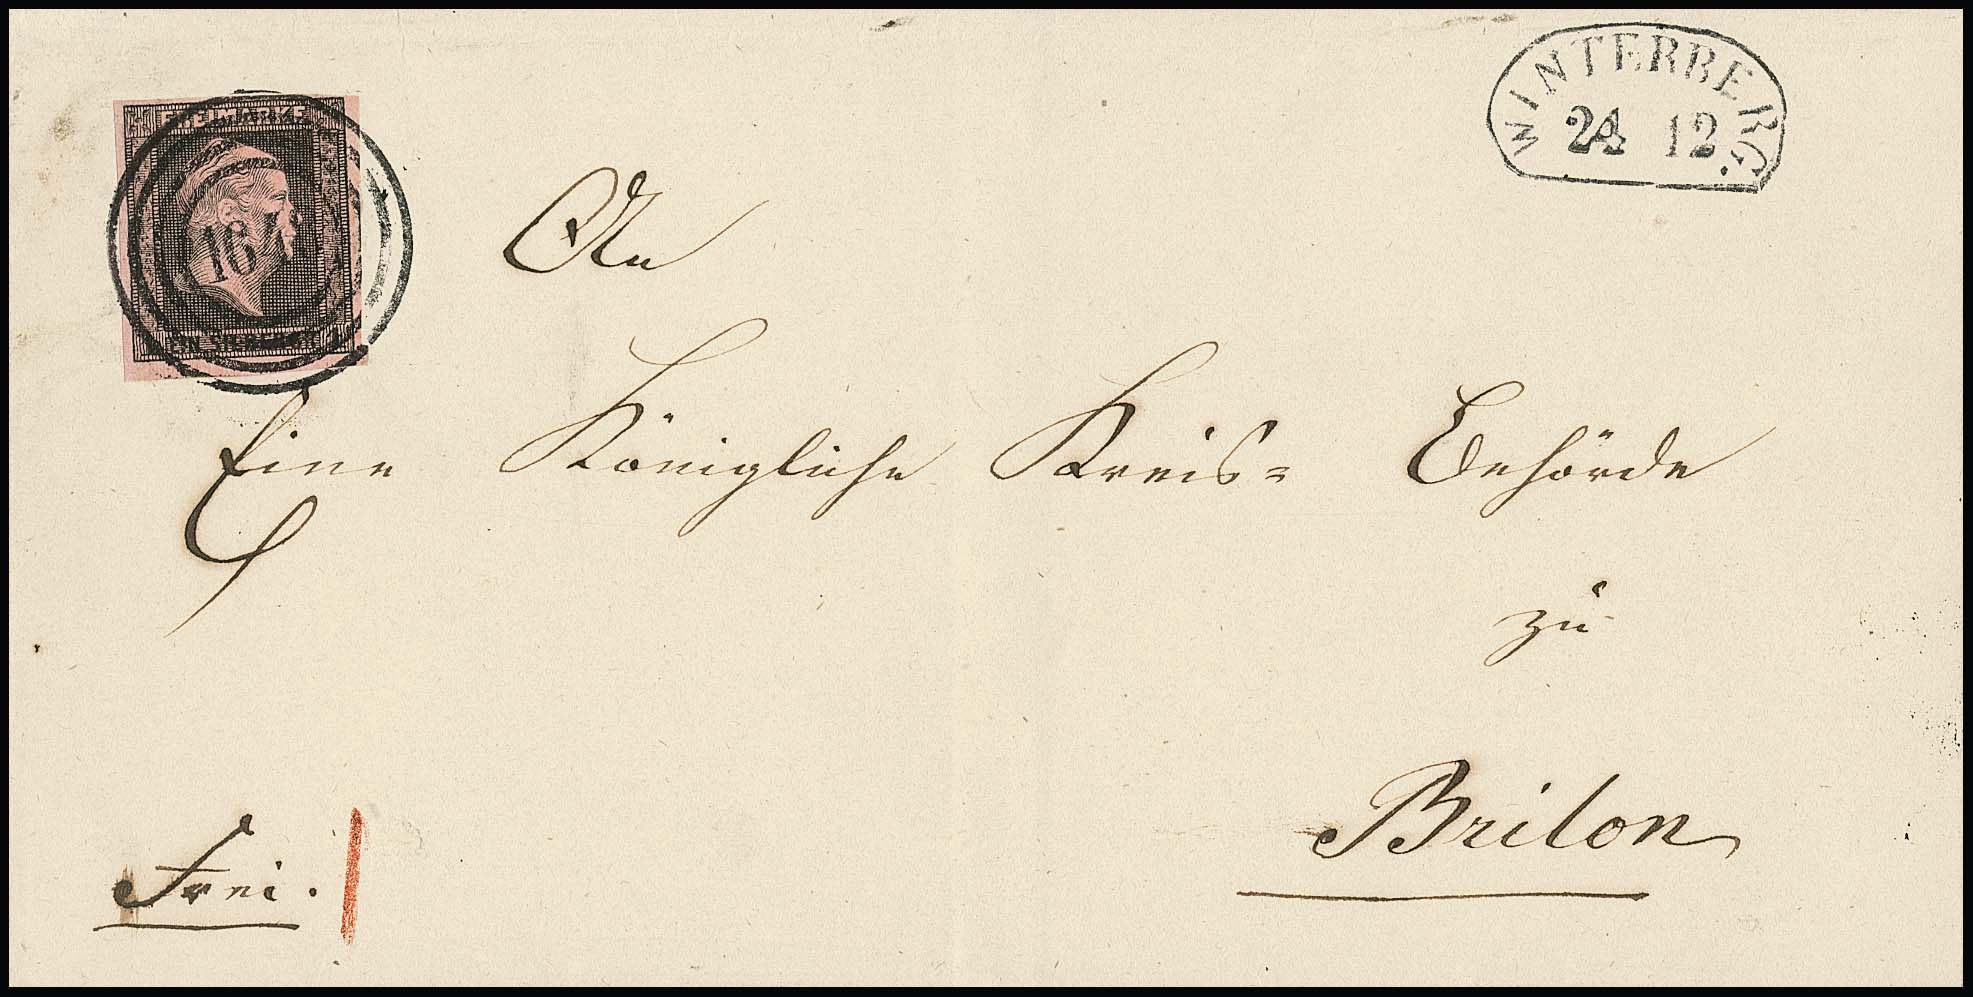 FREIMARKE
EIN SILBERGR.
WINTERBERG.
24 12
An
Eine Königliche Kreis= Behörde
zu
Brilon
Frei.